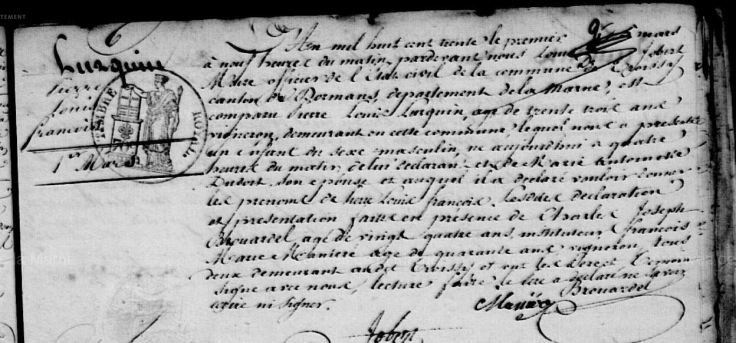 Lurquin
pierre
louis
françois
1er Mars
TIMBRE ROYAL
L'An mil huit cent trente le premier mars
à neuf heures du matin, pardevant nous Louis Jobert
Maire officier de l'Etat civil de la commune de Troissy
canton de Dormans, département de la Marne, est
comparu Pierre Louis Lurquin, age de trente trois ans
vigneron, demeurant en cette commune lequel nous a presenté
un enfant du sexe masculin, ne aujourd'hui a quatre
heures du matin, de lui declarant et de Marie Antoinette
son epouse et auquel il a declaré vouloir donner
les prenoms de pierre Louis françois, lesdites declaration
et presentation faites en presence de Charles Joseph
Brouardel age de vingt quatre ans, instituteur, françois
age de quarante ans vigneron, tous
deux demeurant audit Troissy et ont les
signé avec nous, lecture faite le pere a déclaré ne savoir
ecrire ni signer.
Brouardel
Jobert